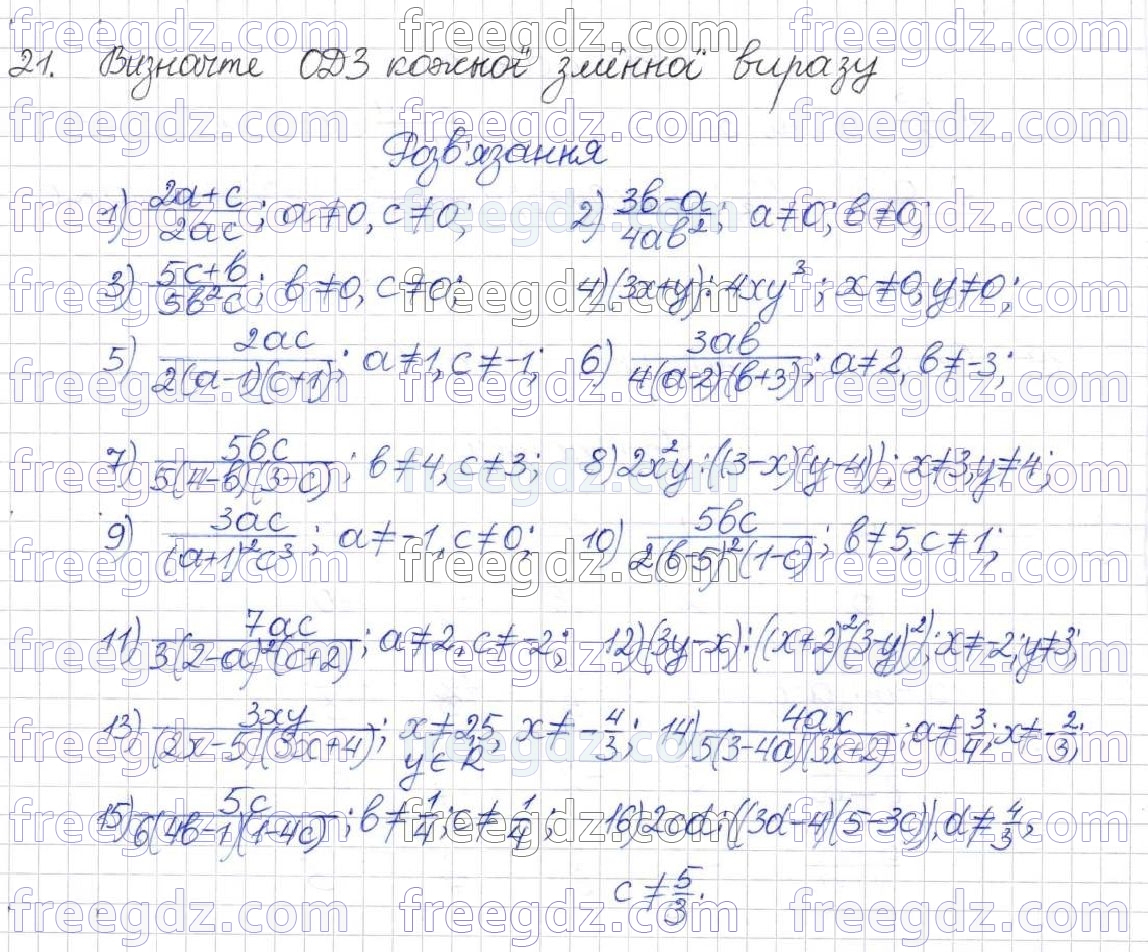 21. Визначте ОДЗ кожної змінної виразу
Розв'язання
1) (2a+c)/(2ac); a≠0, c≠0; 2) (3b-a)/(4ab²); a≠0; b≠0;
3) (5c+b)/(5b²c); b≠0, c≠0; 4) (3x+y):4xy³; x≠0, y≠0;
5) 2ac/(2(a-1)(c+1)); a≠1, c≠-1; 6) 3ab/(4(a-2)(b+3)); a≠2, b≠-3;
7) 5bc/(5(4-b)(3-c)); b≠4, c≠3; 8) 2x²y:((3-x)(y-4)); x≠3, y≠4;
9) 3ac/((a+1)²c³); a≠-1, c≠0; 10) 5bc/(2(b-5)²(1-c)); b≠5, c≠1;
11) 7ac/(3(2-a)²(c+2)); a≠2, c≠-2; 12) (3y-x):((x+2)²(3-y)²); x≠-2; y≠3;
13) 3xy/((2x-5)(3x+4)); x≠2,5, x≠-4/3; 14) 4ax/(5(3-4a)(3x+2)); a≠3/4; x≠-2/3;
y∈R
15) 5c/(6(4b-1)(1-4c)); b≠1/4; c≠1/4; 16) 2cd:((3d-4)(5-3c)), d≠4/3,
c≠5/3.
freegdz.com